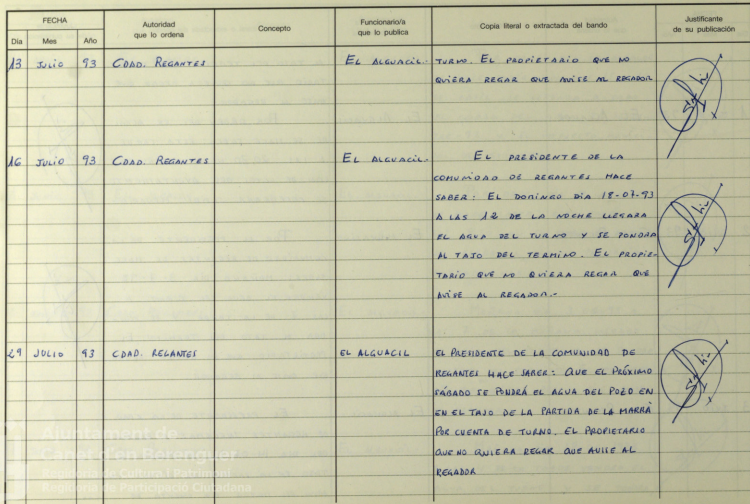 FECHA
Día Mes Año
Autoridad
que lo ordena
Concepto
Funcionario/a
que lo publica
Copia literal o extractada del bando
Justificante
de su publicación
13 JULIO 93 CDAD. REGANTES EL ALGUACIL.- TURNO. EL PROPIETARIO QUE NO
QUIERA REGAR QUE AVISE AL REGADOR
16 JULIO 93 CDAD. REGANTES EL ALGUACIL.- EL PRESIDENTE DE LA
COMUNIDAD DE REGANTES HACE
SABER: EL DOMINGO DIA 18-07-93
A LAS 12 DE LA NOCHE LLEGARA
EL AGUA DEL TURNO Y SE PONDRA
AL TAJO DEL TERMINO. EL PROPIE-
TARIO QUE NO QUIERA REGAR QUE
AVISE AL REGADOR.-
29 JULIO 93 CDAD. REGANTES EL ALGUACIL EL PRESIDENTE DE LA COMUNIDAD DE
REGANTES HACE SABER: QUE EL PRÓXIMO
SÁBADO SE PONDRÁ EL AGUA DEL POZO EN
EN EL TAJO DE LA PARTIDA DE LA MARRÀ
POR CUENTA DE TURNO. EL PROPIETARIO
QUE NO QUIERA REGAR QUE AVISE AL
REGADOR
Ajuntament de
Canet d'en Berenguer
Regidoria de Cultura i Patrimoni
Regidoria de Participació Ciutadana